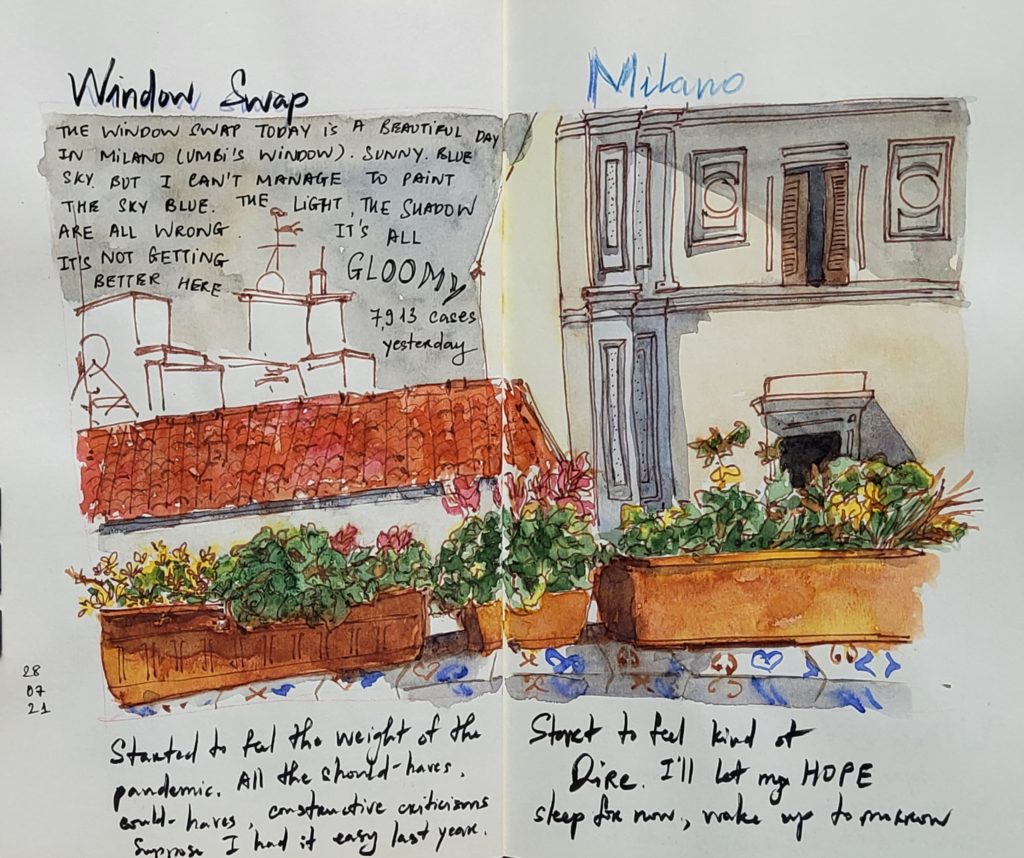 Window Swap
THE WINDOW SWAP TODAY IS A BEAUTIFUL DAY
IN MILANO (UMBI'S WINDOW). SUNNY. BLUE
SKY. BUT I CAN'T MANAGE TO PAINT
THE SKY BLUE. THE LIGHT, THE SHADOW
ARE ALL WRONG. IT'S ALL
IT'S NOT GETTING GLOOMY
BETTER HERE
7,913 cases
yesterday
Milano
28
07
21
Started to feel the weight of the
pandemic. All the should-haves,
could-haves, constructive criticisms
Suppose I had it easy last year.
Start to feel kind of
Dire. I'll let my HOPE
sleep for now, wake up tomorrow